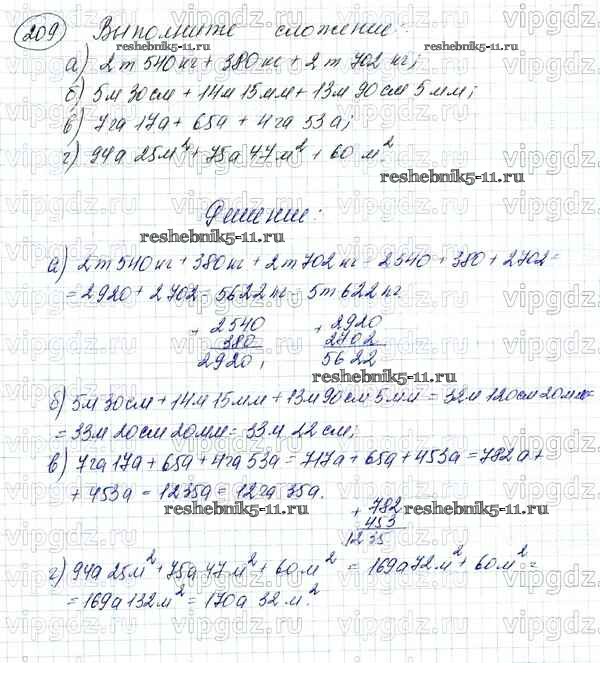 209 Выполните сложение:
а) 2 т 540 кг + 380 кг + 2 т 702 кг;
б) 5 м 30 см + 14 м 15 мм + 13 м 90 см 5 мм;
в) 7 га 17 а + 65 а + 4 га 53 а;
г) 94 а 25 м² + 75 а 47 м² + 60 м².
reshebnik5-11.ru
Решение:
reshebnik5-11.ru
а) 2 т 540 кг + 380 кг + 2 т 702 кг = 2540 + 380 + 2702 =
= 2920 + 2702 = 5622 кг = 5 т 622 кг.
+ 2540 + 2920
380 2702
2920, 5622
reshebnik5-11.ru
б) 5 м 30 см + 14 м 15 мм + 13 м 90 см 5 мм = 32 м 120 см 20 мм =
= 33 м 20 см 20 мм = 33 м 22 см;
в) 7 га 17 а + 65 а + 4 га 53 а = 717 а + 65 а + 453 а = 782 а +
+ 453 а = 1235 а = 12 га 35 а.
reshebnik5-11.ru
+ 782
453
1235
г) 94 а 25 м² + 75 а 47 м² + 60 м² = 169 а 72 м² + 60 м² =
= 169 а 132 м² = 170 а 32 м².
vipgdz.ru